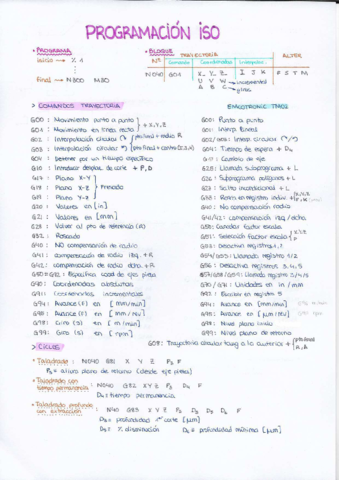 PROGRAMACIÓN ISO
PROGRAMA
Inicio → % 1
Final → N300 M30
BLOQUE
TRAYECTORIA
ALTER
Nº Comando Coordenadas Interpolac.
N040 G01 X, Y, Z I J K F S T M
U V W → incremental
A B C → giros
> COMANDOS TRAYECTORIA
G00 : Movimiento punto a punto
G01 : Movimiento en línea recto
+ X, Y, Z
G02 : Interpolación circular
G03 : Interpolación circular
G04 : Detener por un tiempo específico
G10 : Introducir desplaz. de corte + P, D
G17 : Plano X-Y
G18 : Plano X-Z
G19 : Plano Y-Z
Fresado
G20 : Valores en [in]
G21 : Valores en [mm]
G28 : Volver al pto de referencia (R)
G32 : Roscado
G40 : NO compensación de radio
G41 : compensación de radio izq. + R
G42 : compensación de radio dcha + R
G90 : Coordenadas absolutas
G91 : Coordenadas incrementales
G94 : Avance (F) en [mm/min]
G98 : Avance (F) en [mm/rev]
G98 : Giro (S) en [m/min]
G99 : Giro (S) en [rpm]
EMCOTRONIC TM02
G00 : Punto a punto
G01 : Interp. lineal
G02/G03 : Interp. circular
G04 : Tiempo de espera + D₄
G17 : Cambio de eje
G25 : Llamada subprograma + L
G26 : Subprograma polígonos + L
G27 : Salto incondicional + L
G40 : No compensación radio
G41/G42 : compensación izq / dcha
G50 : Cancelar factor escala
G51 : Selección factor escala
G53 : Desactiva registros 1, 2
G54/G55 : Llamada registros 1/2
G56 : Desactiva registros 3, 4, 5
G57/G58/G59 : Llamada registros 3/4/5
G70/G71 : Unidades en in / mm
G92 : Escribir en registro 5
G94 : Avance en [mm/min]
G95 : Avance en [µm/rev]
G98 : Nivel plano inicio
G99 : Nivel plano de retirno
> CICLOS
• Taladrado : N040 G81 X Y Z P₃ F
P₃ = altura plano de retirno (desde eje pieza)
• Taladrado con tiempo permanencia : N040 G82 X Y Z P₃ D₄ F
D₄ = tiempo permanencia
• Taladrado profundo con extracción : N040 G83 X Y Z P₃ D₃ D₅ D₆ F
D₃ = profundidad 1er corte [µm]
D₅ = % disminución D₆ = profundidad mínima [µm]